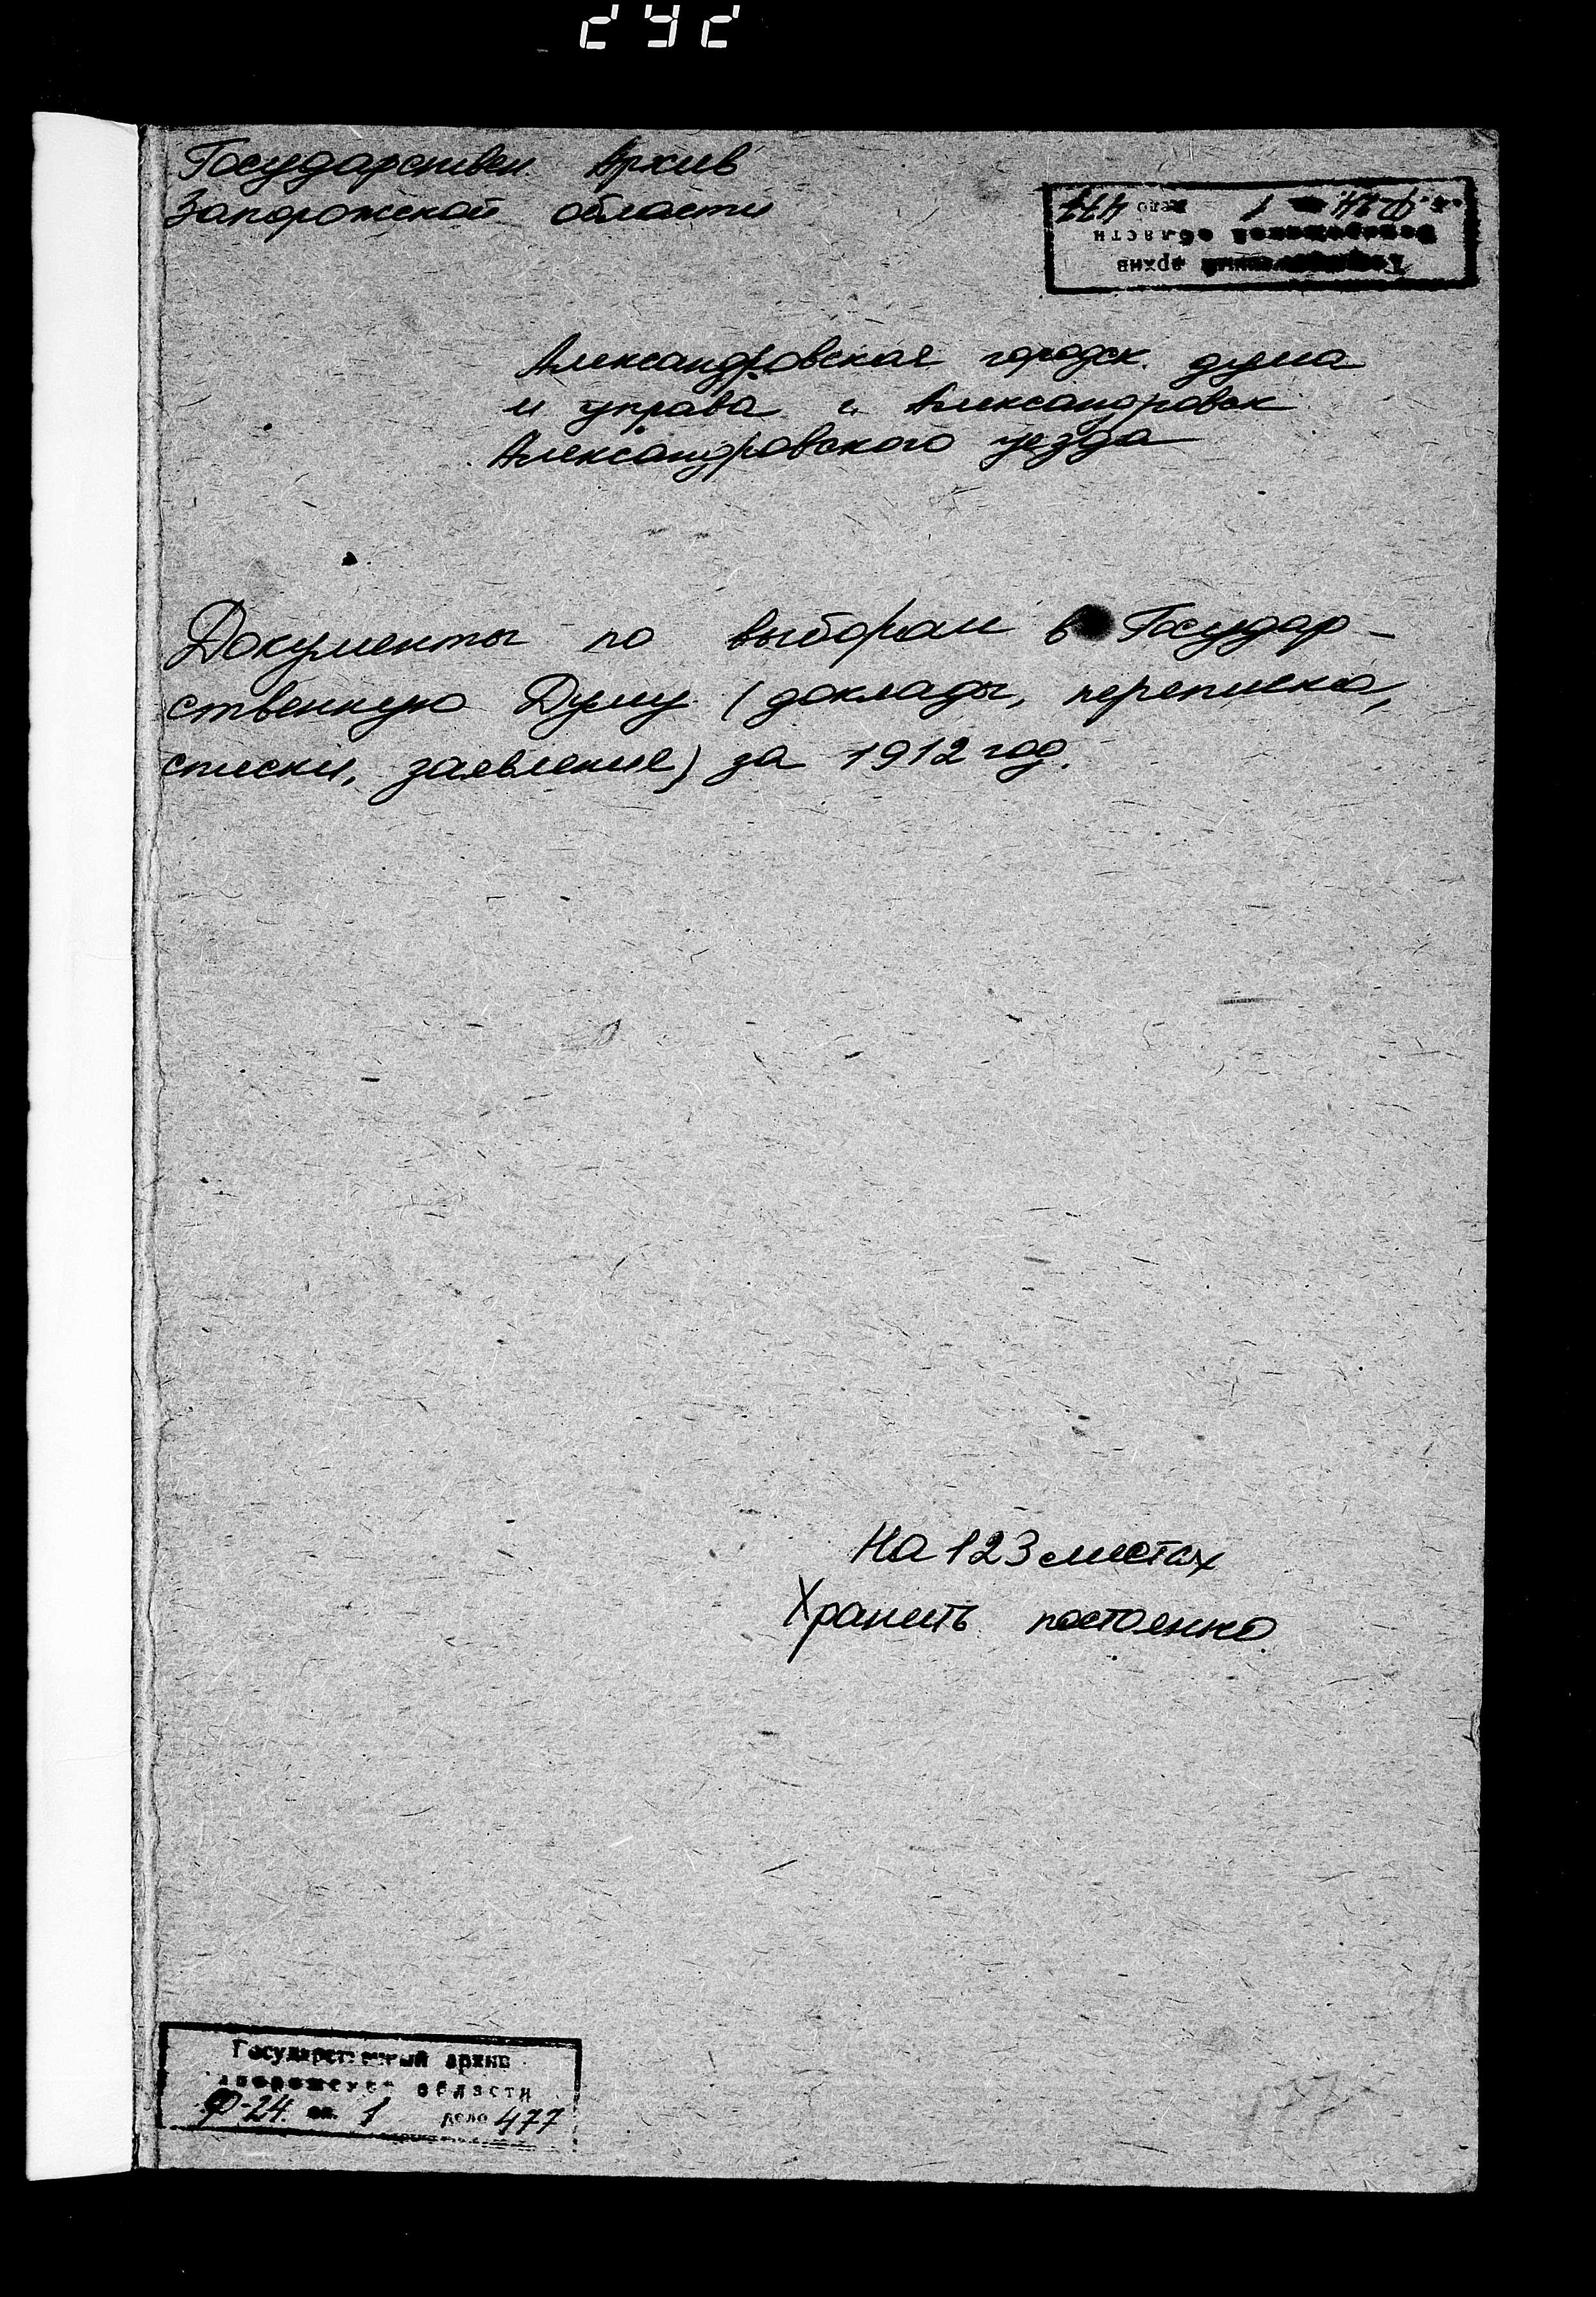 292
Государствен. Архив
Запорожской области
Государственный архив
Запорожской области
Ф-24. оп. 1 дело 477
Александровская городск. дума
и управа г. Александровск
Александровского уезда
Документы по выборам в Государ-
ственную Думу (доклады, переписка,
списки, заявления) за 1912 год.
На 123 листах
Хранить постоянно
Государственный архив
Запорожской области
Ф-24. оп. 1 дело 477